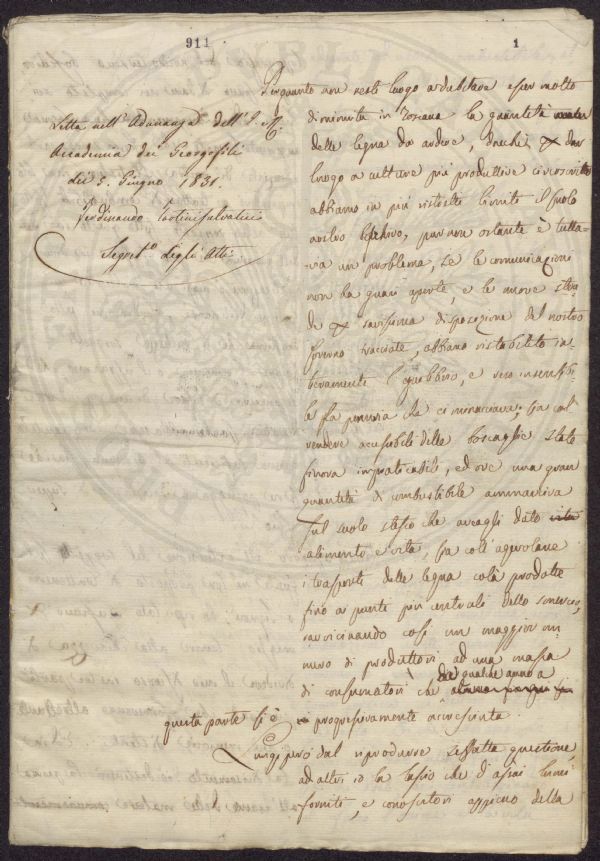 911
1
Letta nell' Adunanza dell' I. e R.
Accademia dei Georgofili
del 5. Giugno 1831.
Ferdinando Tartini Salvatici
Segret.o degli Atti
Perquanto non resti luogo a dubitare esser molto
diminuita in Toscana la quantità
delle legna da ardere, dacchè per dar
luogo a culture più produttive circoscritto
abbiamo in più ristretti limiti il suolo
boschivo, pur non ostante è tutta-
via un problema, se le comunicazioni
non ha guari aperte, e le nuove stra
de per savissima disposizione del nostro
Governo tracciate, abbiano ristabilito in-
tieramente l' equilibrio, e reso insensibi-
le la penuria che ci minacciava: sia col
rendere accessibili delle boscaglie state
finora impraticabili, ed ove una gran
quantità di combustibile ammarciva
sul suolo stesso che aveagli dato vita
alimento e vita, sia coll' agevolare
i trasporti delle legna colà prodotte
fino ai punti più centrali dello smercio,
ravvicinando così un maggior nu-
mero di produttori ad una massa
di consumatori che da qualche anno a
questa parte si è progressivamente accresciuta.
Lungi però dal riprodurre siffatta questione,
ad altri io la lascio che d' assai lumi
forniti, e conoscitori appieno della